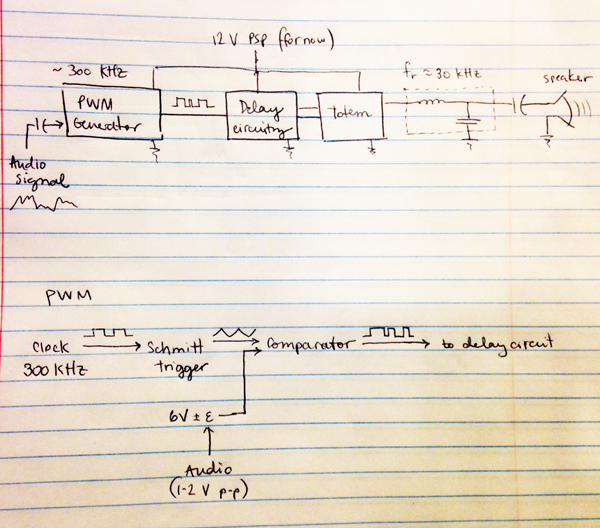 12 V PSP (for now)
~ 300 KHz
fr ≈ 30 kHz
speaker
PWM
Generator
Delay
circuitry
Totem
Audio
signal
PWM
Clock
300 KHz
Schmitt
trigger
Comparator
to delay circuit
6V ± ε
Audio
(1-2 V p-p)